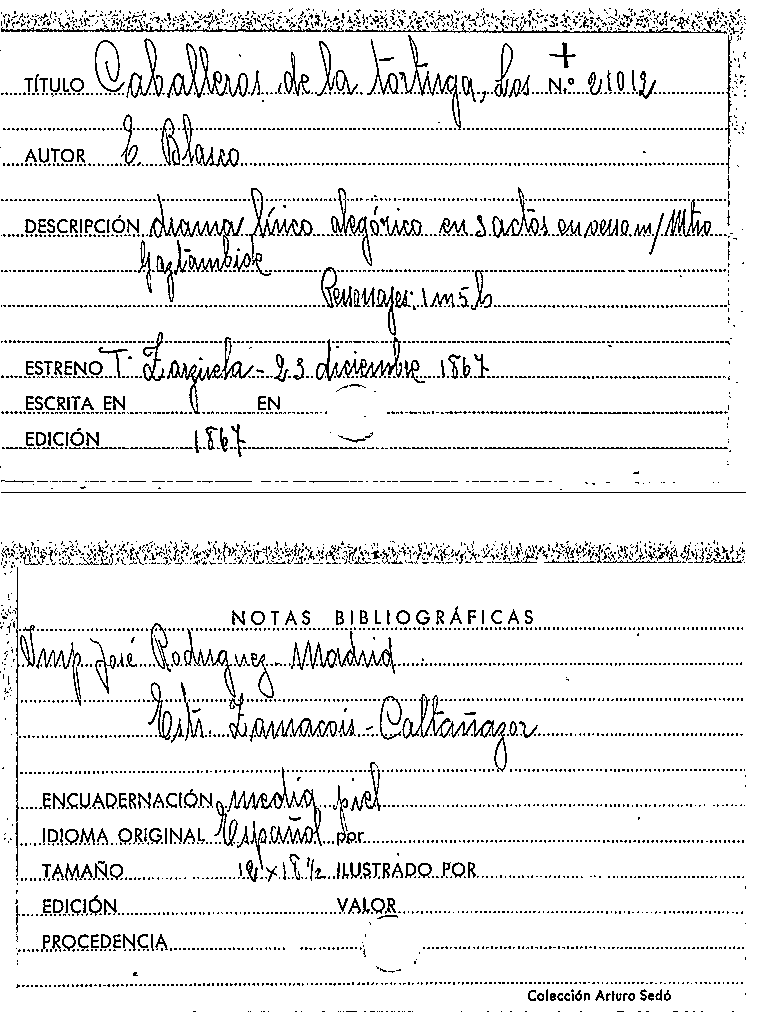 TÍTULO Caballeros de la tortuga, Los N.º 21012
AUTOR E. Blasco
DESCRIPCIÓN drama lírico alegórico en 3 actos en verso m/ Mtro
Gaztambide
Personajes: 1 m 5 h
ESTRENO T. Zarzuela - 23 diciembre 1867
ESCRITA EN EN
EDICIÓN 1867
NOTAS BIBLIOGRÁFICAS
Imp José Rodriguez Madrid
Estr. Zamacois - Caltañazor
ENCUADERNACIÓN media piel
IDIOMA ORIGINAL Español por
TAMAÑO 12 x 18 ½ ILUSTRADO POR
EDICIÓN VALOR
PROCEDENCIA
Colección Arturo Sedó